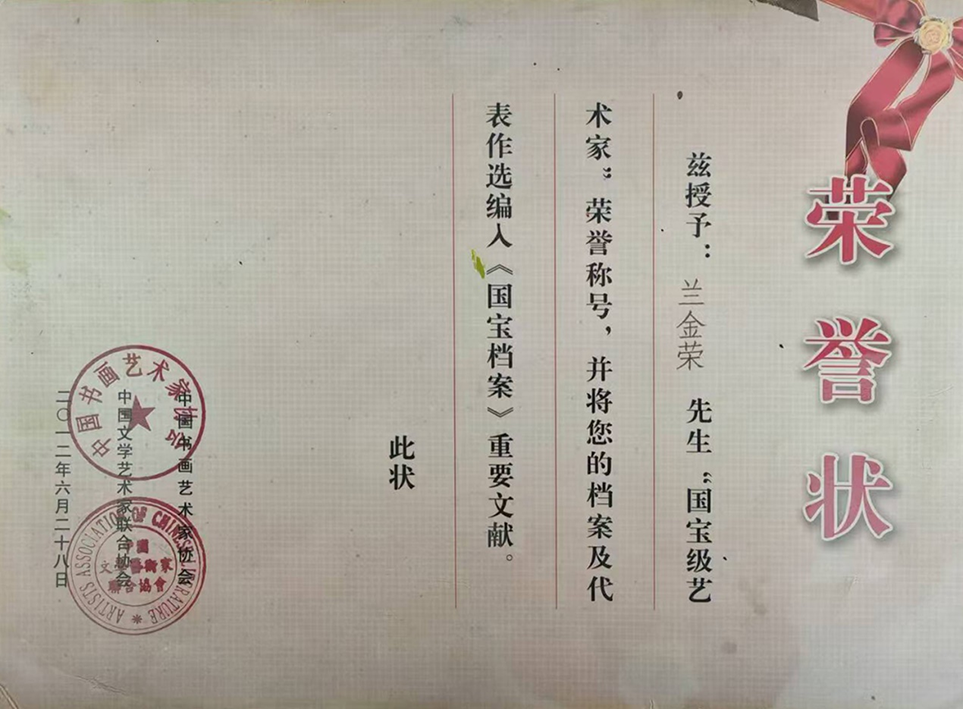 荣誉状
兹授予：兰金荣 先生“国宝级艺
术家”荣誉称号，并将您的档案及代
表作选编入《国宝档案》重要文献。
此状
中国书画艺术家协会
中国文学艺术家联合协会
二〇一二年六月二十八日
中国书画艺术家协会
ARTISTS ASSOCIATION OF CHINESE LITERATURE
中國
文學藝術家
聯合協會